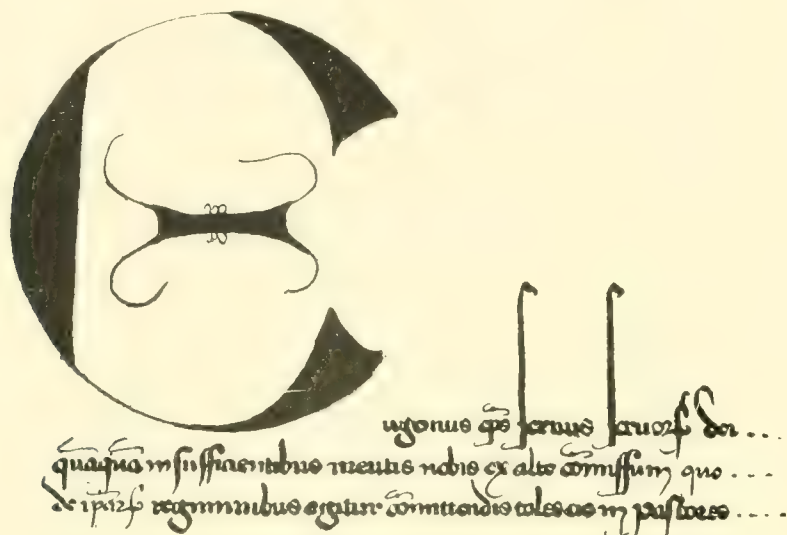 Eugenius ep̄s seruus seruoꝝ dei ....
quāquā insufficientibus meritis nobis ex alto cōmissum quo ....
de ipaꝝ regiminibus agitur cōmittendis tales eis in pastores ....